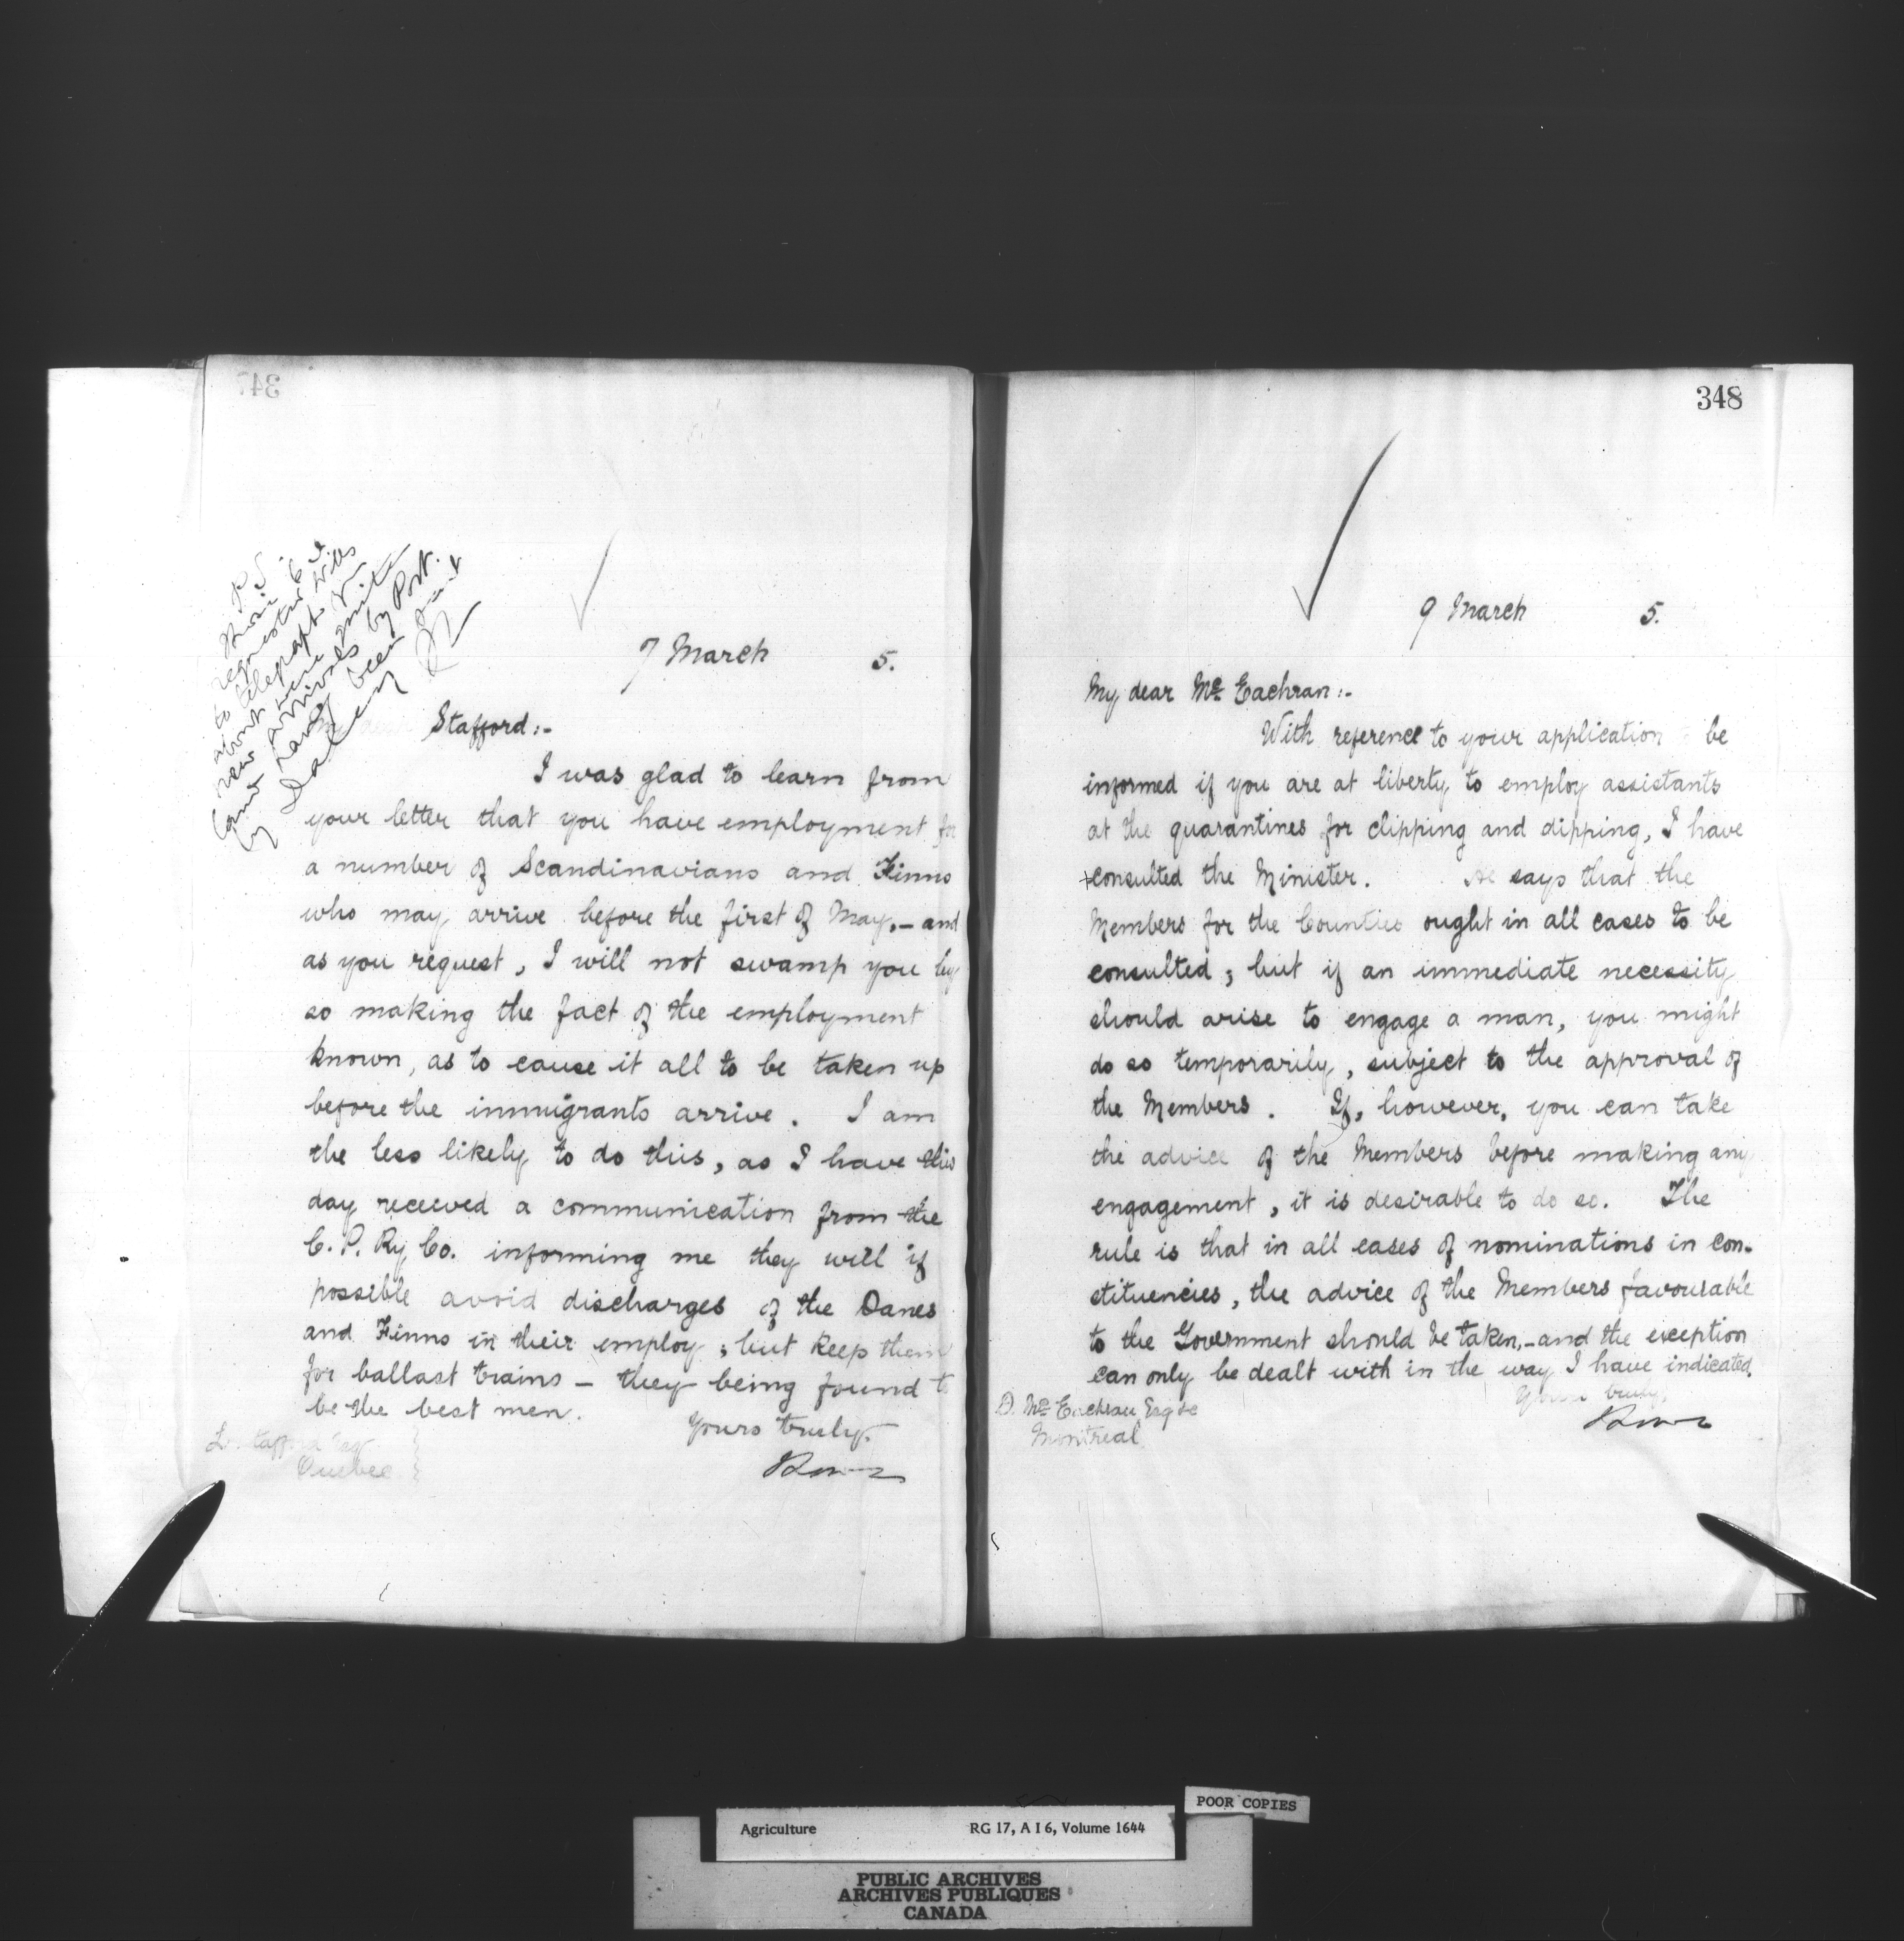 347
P.S.
requested
to telegraph
about
new arrivals by Post.
been sent
7 March 5.
Stafford:-
I was glad to learn from
your letter that you have employment for
a number of Scandinavians and Finns
who may arrive before the first of May,- and
as you request, I will not swamp you by
so making the fact of the employment
known, as to cause it all to be taken up
before the immigrants arrive. I am
the less likely to do this, as I have this
day received a communication from the
C. P. Ry Co. informing me they will if
possible avoid discharges of the Danes
and Finns in their employ; but keep them
for ballast trains - they being found to
be the best men.
Yours truly,
Quebec
348
9 March 5.
My dear Mc Eachran:-
With reference to your application be
informed if you are at liberty to employ assistants
at the quarantines for clipping and dipping, I have
+consulted the Minister. He says that the
Members for the Counties ought in all cases to be
consulted; but if an immediate necessity
should arise to engage a man, you might
do so temporarily, subject to the approval of
the Members. If, however, you can take
the advice of the Members before making any
engagement, it is desirable to do so. The
rule is that in all cases of nominations in con-
stituencies, the advice of the Members favourable
to the Government should be taken,- and the exception
can only be dealt with in the way I have indicated.
Yours truly,
D. Mc Eachran Esq
Montreal
POOR COPIES
Agriculture RG 17, A I 6, Volume 1644
PUBLIC ARCHIVES
ARCHIVES PUBLIQUES
CANADA